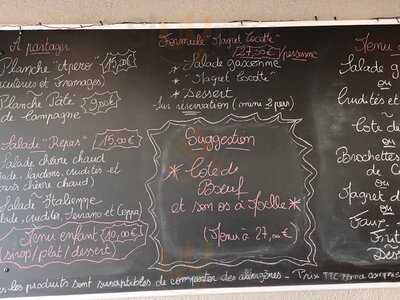 A partager
Planche "Apero" 15,00€
cuteries et Fromages)
Planche Pâte 9,00€
de campagne
Salade "Repas" 15,00€
Salade chèvre chaud
lade, lardons, crudités et
chaud)
Salade Italienne
lade, crudités, Serrano et Coppa)
Menu enfant 10,00€
(sirop/plat/dessert)
Formule "Magret Cocotte"
27,50€/personne
* Salade gasconne
* "Magret Cocotte"
* Dessert
Sur réservation (mini 2 pers)
Suggestion
* Cote de
Boeuf
et son os à Moelle *
(Menu à 27,00€)
Menu
Salade g
ou
Crudités et
~
Cote de
ou
Brochettes
de C
ou
Magret d
ou
Faux-
Frit
Dess
les produits sont susceptibles de comporter des allergènes - Prix TTC